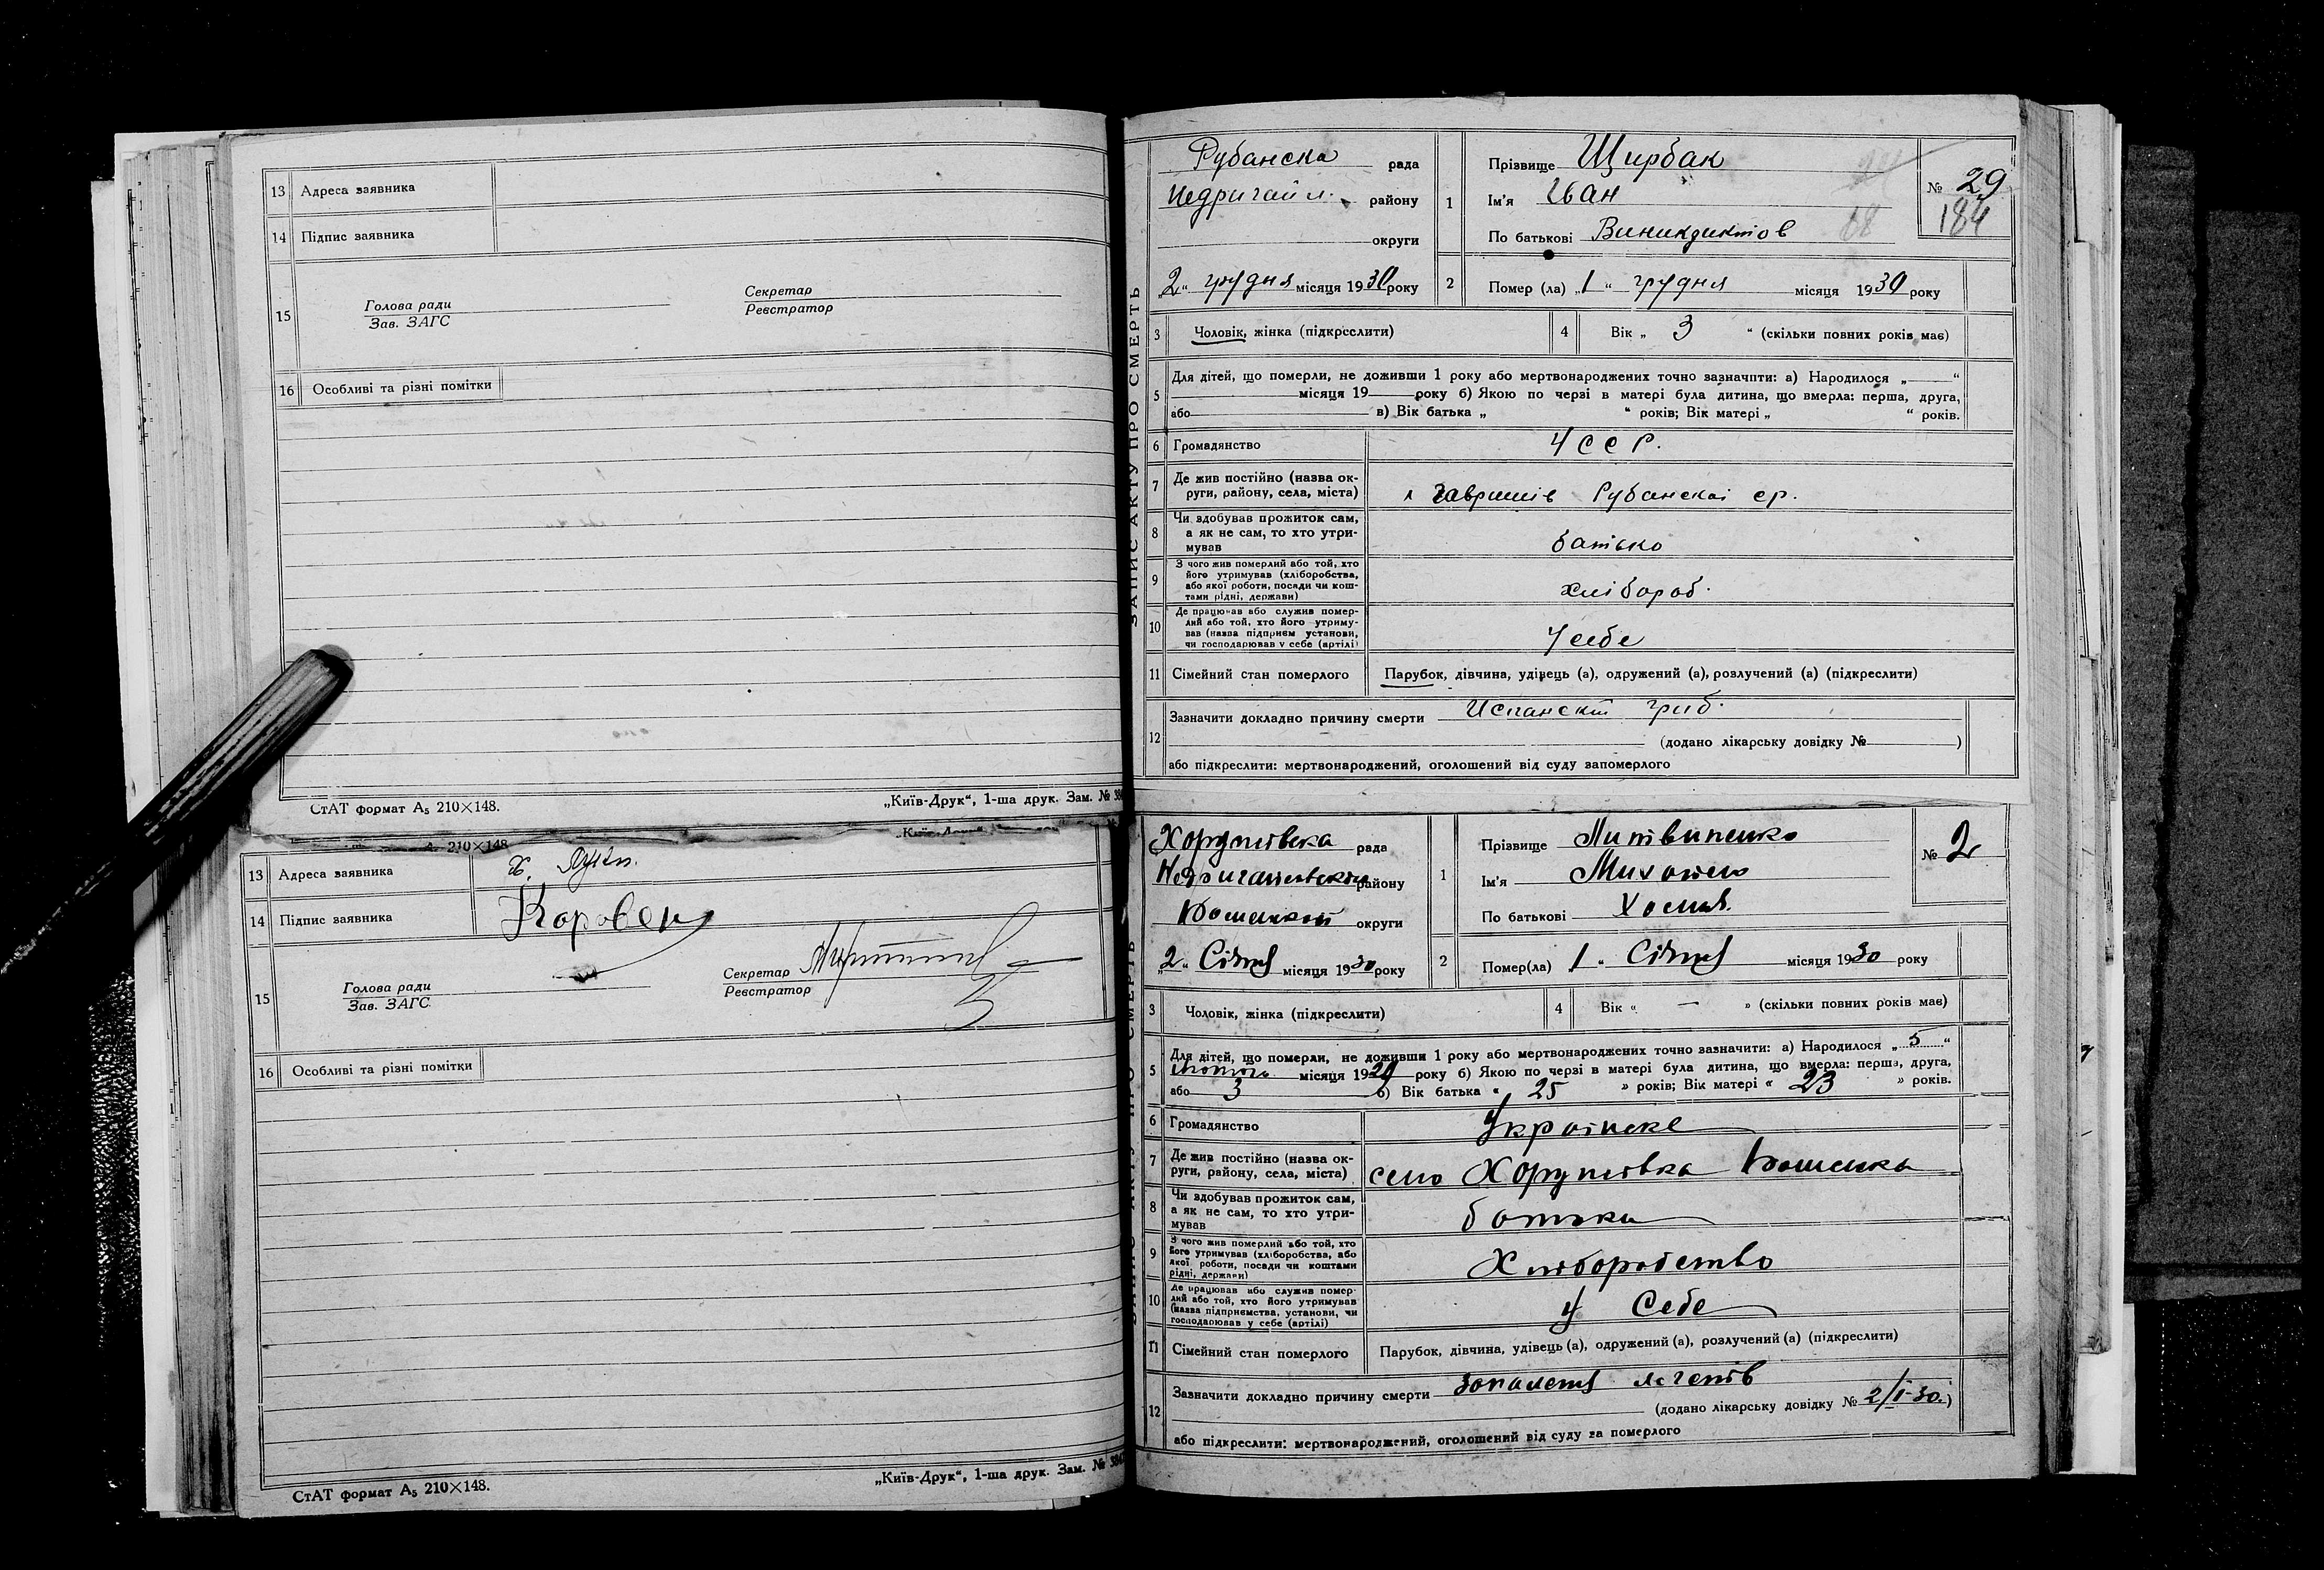 13 Адреса заявника
14 Підпис заявника
15 Голова ради
Зав. ЗАГС
Секретар
Реєстратор
16 Особливі та різні помітки
СтАТ формат А₅ 210×148.
„Київ-Друк“, 1-ша друк. Зам. №
ЗАПИС АКТУ ПРО СМЕРТЬ
Рубанска рада
Недригайл. району
округи
„2“ грудня місяця 1930 року
1 Прізвище Щирбак
Ім'я Іван
По батькові Виникдиктов
№ 29
184
2 Помер (ла) „1“ грудня місяця 1930 року
3 Чоловік, жінка (підкреслити)
4 Вік „ 3 “ (скільки повних років має)
5 Для дітей, що померли, не доживши 1 року або мертвонароджених точно зазначити: а) Народилося „ “
місяця 19 року б) Якою по черзі в матері була дитина, що вмерла: перша, друга,
або в) Вік батька „ “ років; Вік матері „ “ років.
6 Громадянство УССР.
7 Де жив постійно (назва ок-
руги, району, села, міста) Гавришів Рубанскої ср.
8 Чи здобував прожиток сам,
а як не сам, то хто утри-
мував батько
9 З чого жив померлий або той, хто
його утримував (хліборобства,
або якої роботи, посади чи кош-
тами рідні, держави) хлібороб.
10 Де працював або служив помер-
лий або той, хто його утриму-
вав (назва підприєм установи,
чи господарював у себе (артілі) У себе
11 Сімейний стан померлого Парубок, дівчина, удівець (а), одружений (а), розлучений (а) (підкреслити)
12 Зазначити докладно причину смерти Испанскій гриб.
(додано лікарську довідку № )
або підкреслити: мертвонароджений, оголошений від суду запомерлого
А₅ 210×148
13 Адреса заявника
14 Підпис заявника
15 Голова ради
Зав. ЗАГС
Секретар
Реєстратор
16 Особливі та різні помітки
СтАТ формат А₅ 210×148.
„Київ-Друк“, 1-ша друк. Зам. №
Хорунівска рада
району
округи
„2“ Січня місяця 1930 року
1 Прізвище Литвиненко
Ім'я
По батькові
№ 2
2 Помер(ла) 1 “ Січня місяця 1930 року
3 Чоловік, жінка (підкреслити)
4 Вік “ — » (скільки повних років має)
5 Для дітей, що померли, не доживши 1 року або мертвонароджених точно зазначити: а) Народилося „ 5 “
місяця 1929 року б) Якою по черзі в матері була дитина, що вмерла: перша, друга,
або 3 в) Вік батька “ 25 » років; Вік матері “ 23 » років.
6 Громадянство Українске
7 Де жив постійно (назва ок-
руги, району, села, міста) село Хорунівка
8 Чи здобував прожиток сам,
а як не сам, то хто утри-
мував батька
9 З чого жив померлий або той, хто
його утримував (хліборобства, або
якої роботи, посади чи коштами
рідні, держави) Хліборобство
10 Де працював або служив помер-
лий або той, хто його утримував
(назва підприємства, установи, чи
господарював у себе (артілі) у Себе
11 Сімейний стан померлого Парубок, дівчина, удівець (а), одружений (а), розлучений (а) (підкреслити)
12 Зазначити докладно причину смерти запаленя легенів
(додано лікарську довідку № 2/I-30.)
або підкреслити: мертвонароджений, оголошений від суду за померлого